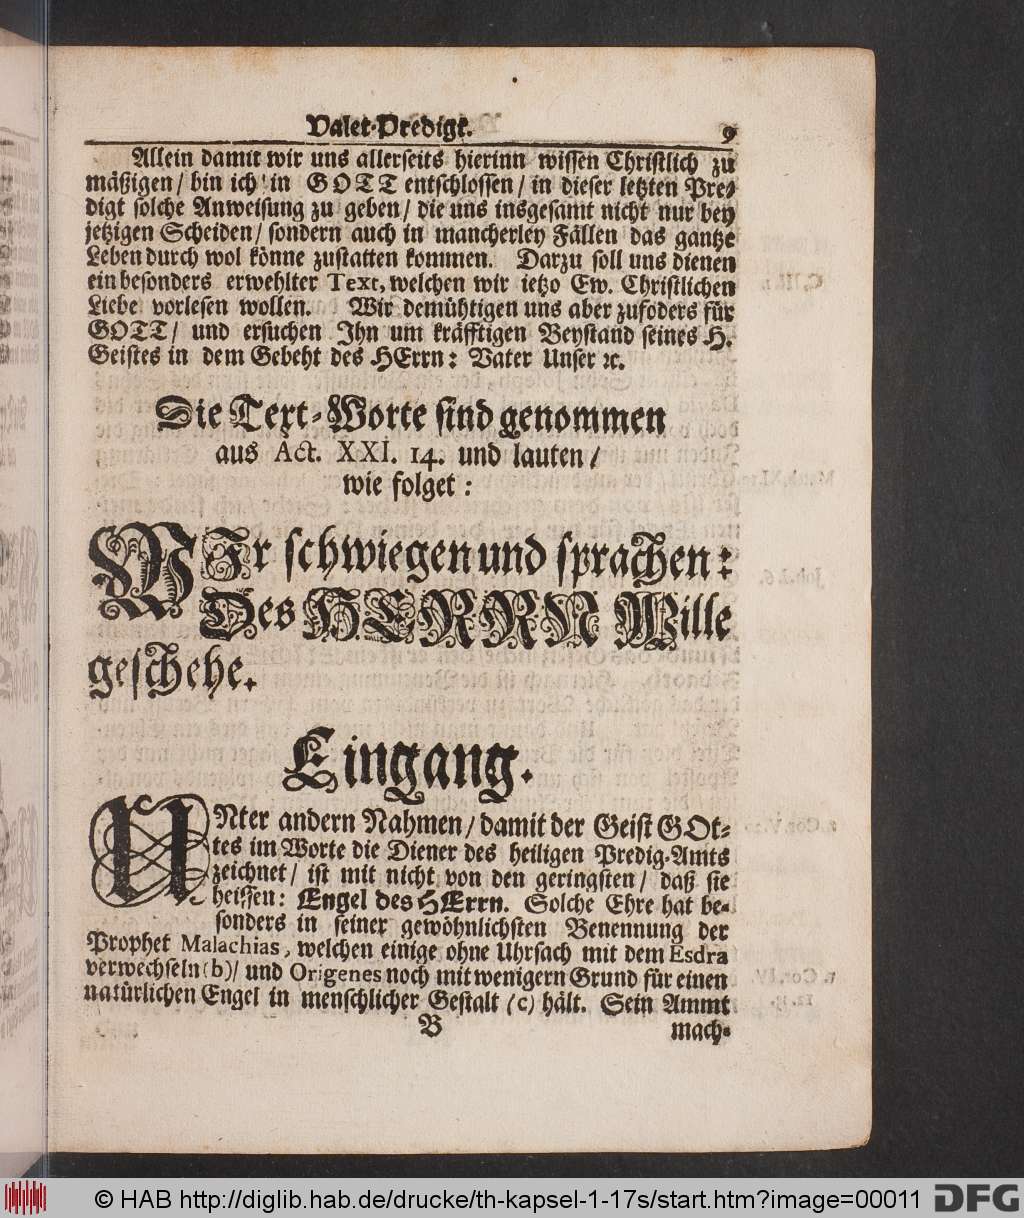 Valet-Predigt. 9
Allein damit wir uns allerseits hierinn wissen Christlich zu
mäßigen / bin ich in GOTT entschlossen / in dieser letzten Pre-
digt solche Anweisung zu geben / die uns insgesamt nicht nur bey
jetzigen Scheiden / sondern auch in mancherley Fällen das gantze
Leben durch wol könne zustatten kommen. Darzu soll uns dienen
ein besonders erwehlter Text, welchen wir ietzo Ew. Christlichen
Liebe vorlesen wollen. Wir demühtigen uns aber zufoders für
GOTT / und ersuchen Ihn um kräfftigen Beystand seines H.
Geistes in dem Gebeht des HErrn: Vater Unser ꝛc.
Die Text-Worte sind genommen
aus Act. XXI. 14. und lauten /
wie folget:
WIr schwiegen und sprachen:
Des HERRN Wille
geschehe.
Eingang.
UNter andern Nahmen / damit der Geist GOt-
tes im Worte die Diener des heiligen Predig-Amts
zeichnet / ist mit nicht von den geringsten / daß sie
heissen: Engel des HErrn. Solche Ehre hat be-
sonders in seiner gewöhnlichsten Benennung der
Prophet Malachias, welchen einige ohne Uhrsach mit dem Esdra
verwechseln (b) / und Origenes noch mit wenigern Grund für einen
natürlichen Engel in menschlicher Gestalt (c) hält. Sein Ammt
B mach-
© HAB http://diglib.hab.de/drucke/th-kapsel-1-17s/start.htm?image=00011 DFG